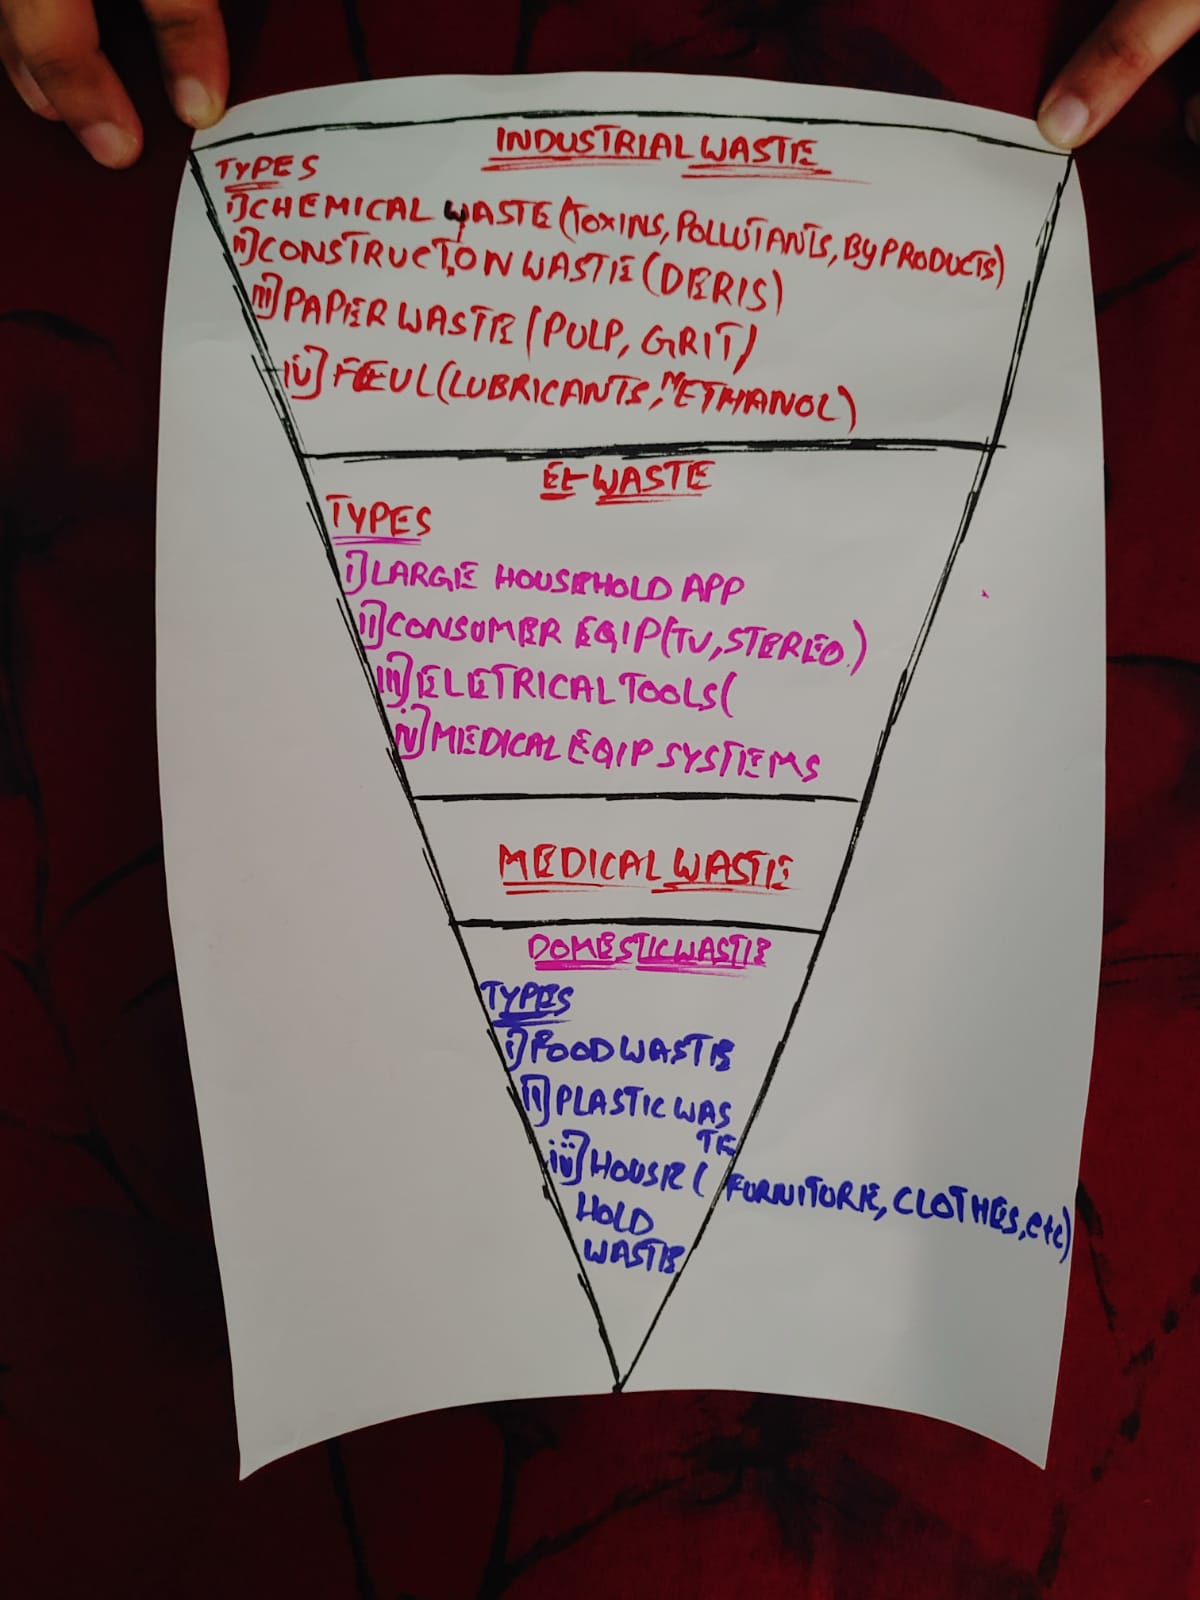 INDUSTRIAL WASTE
TYPES
i] CHEMICAL WASTE (TOXINS, POLLUTANTS, BYPRODUCTS)
ii] CONSTRUCTION WASTE (DERIS)
iii] PAPER WASTE (PULP, GRIT)
iv] FEUL (LUBRICANTS, METHANOL)
E-WASTE
TYPES
i] LARGE HOUSEHOLD APP
ii] CONSUMER EQIP (TV, STEREO.)
iii] ELETRICAL TOOLS (
iv] MEDICAL EQIP SYSTEMS
MEDICAL WASTE
DOMESTIC WASTE
TYPES
i] FOOD WASTE
ii] PLASTIC WAS
TE
iii] HOUSE ( FURNITURE, CLOTHES, etc)
HOLD
WASTE